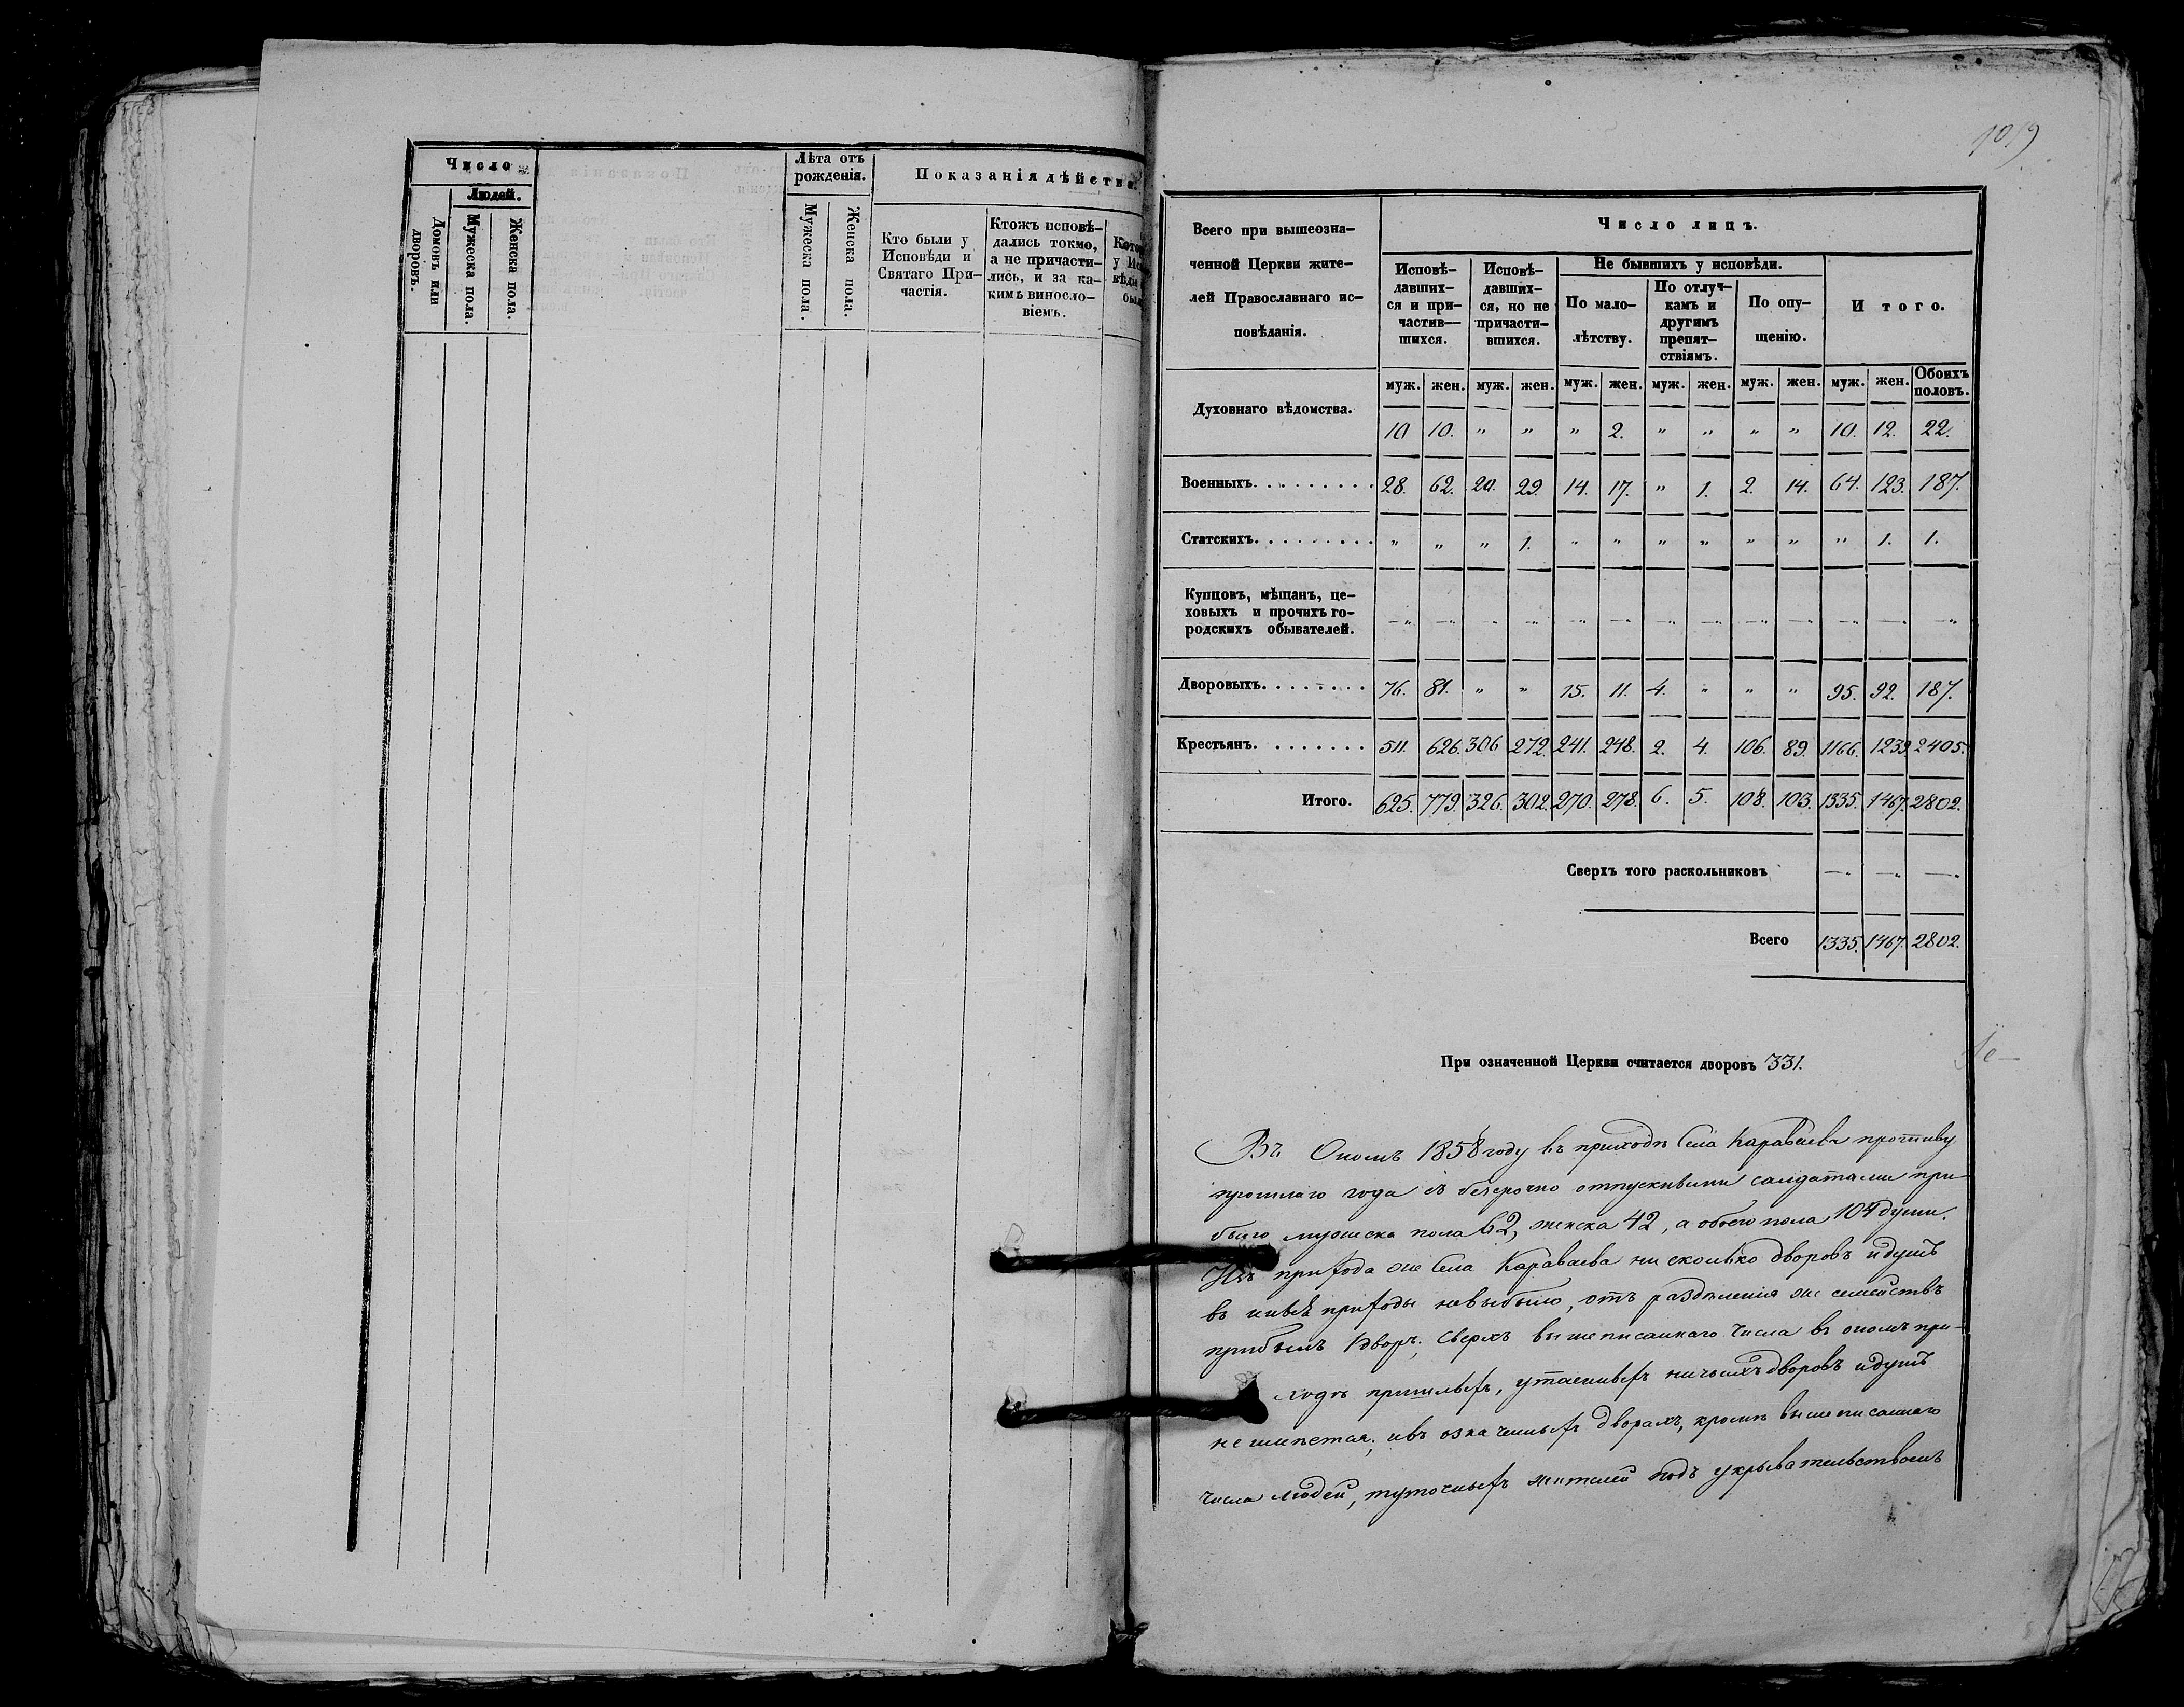 Число
Людей.
Домовъ или дворовъ.
Мужеска пола.
Женска пола.
Лѣта отъ рожденія.
Мужеска пола.
Женска пола.
Показанія дѣйстви
Кто были у Исповѣди и Святаго При-
частія.
Ктожъ исповѣ-
дались токмо,
а не причасти-
лись, и за ка-
кимъ винosло-
віемъ.
1019
Всего при вышеозна-
ченной Церкви жите-
лей Православнаго ис-
повѣданія.
Число лицъ.
Исповѣ-
давших-
ся и при-
частив-
шихся.
Исповѣ-
давших-
ся, но не
причасти-
вшихся.
Не бывшихъ у исповѣди.
По мало-
лѣтству.
По отлуч-
камъ и
другимъ
препят-
ствіямъ.
По опу-
щенію.
Итого.
муж. жен. муж. жен. муж. жен. муж. жен. муж. жен. муж. жен. Обоихъ половъ.
Духовнаго вѣдомства. 10 10. " " " 2. " " " " 10. 12. 22.
Военныхъ. 28. 62. 20. 29. 14. 17. " 1. 2. 14. 64. 123. 187.
Статскихъ. " " " 1. " " " " " " " 1. 1.
Купцовъ, мѣщанъ, це-
ховыхъ и прочихъ го-
родскихъ обывателей. —" —" —" —" —" —" —" —" —" —" —" —" —"
Дворовыхъ. 76. 81. " " 15. 11. 4. " " " 95. 92. 187.
Крестьянъ. 511. 626. 306 272. 241. 248. 2. 4. 106. 89. 1166. 1239 2405.
Итого. 625. 779. 326. 302. 270. 278. 6. 5. 108. 103. 1335. 1467. 2802.
Сверхъ того раскольниковъ —. —. —.
Всего 1335. 1467. 2802.
При означенной Церкви считается дворовъ 331.
Въ Ономъ 1858 году въ приходѣ Села Караваева противу
прошлаго года съ безсрочно отпускными салдатами при-
было мужеска пола 62, женска 42, а обоего пола 104 души.
Изъ прихода же Села Караваева ни сколько дворовъ и душъ
въ иныѣ приходы невыбыло, отъ раздѣленія же семействъ
прибылъ 1 дворъ; Сверхъ вышеписаннаго числа въ ономъ при-
ходѣ пришлыхъ, утаенныхъ ничьихъ дворовъ и душъ
не имѣется; ивъ означенныхъ дворахъ, кромѣ вышеписаннаго
числа людей, туточныхъ жителей подъ укрывательствомъ